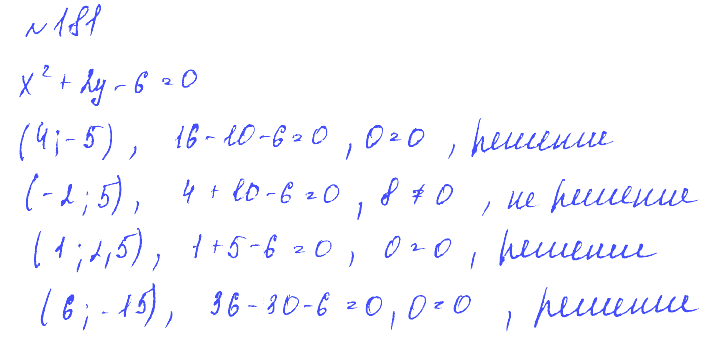 №181
x² + 2y - 6 = 0
(4; -5), 16 - 10 - 6 = 0, 0 = 0, решение
(-2; 5), 4 + 10 - 6 = 0, 8 ≠ 0, не решение
(1; 2,5), 1 + 5 - 6 = 0, 0 = 0, решение
(6; -15), 36 - 30 - 6 = 0, 0 = 0, решение